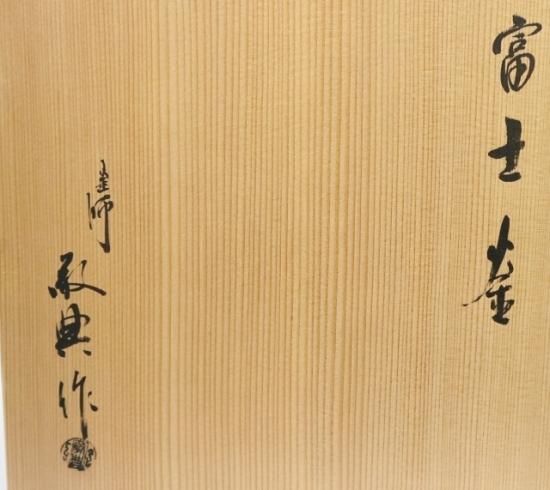 富士釜
釜師
敬典作